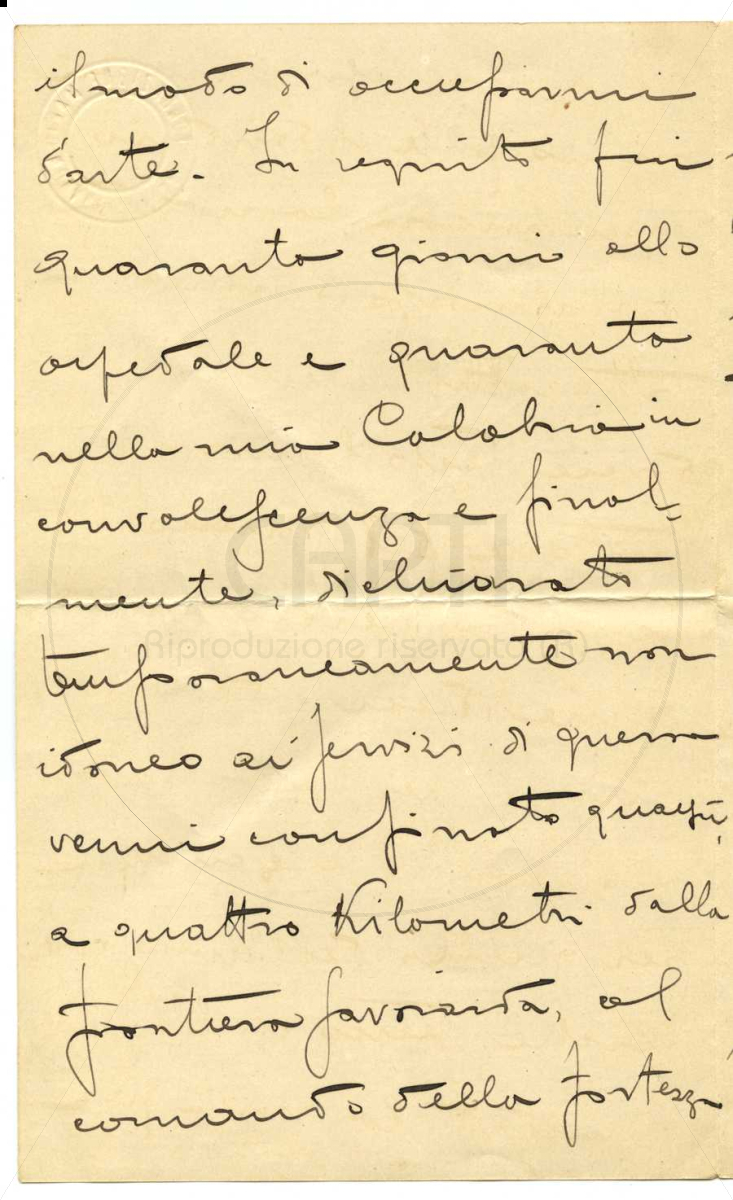 il modo di occuparmi
d'arte. In seguito fui
quaranta giorni allo
ospedale e quaranta
nella mia Calabria in
convalescenza e final-
mente, dichiarato
temporaneamente non
idoneo ai servizi di guerra
venni confinato quassù,
a quattro Kilometri dalla
frontiera savoiarda, al
comando della fortezza
CARTI
Riproduzione riservata (R)